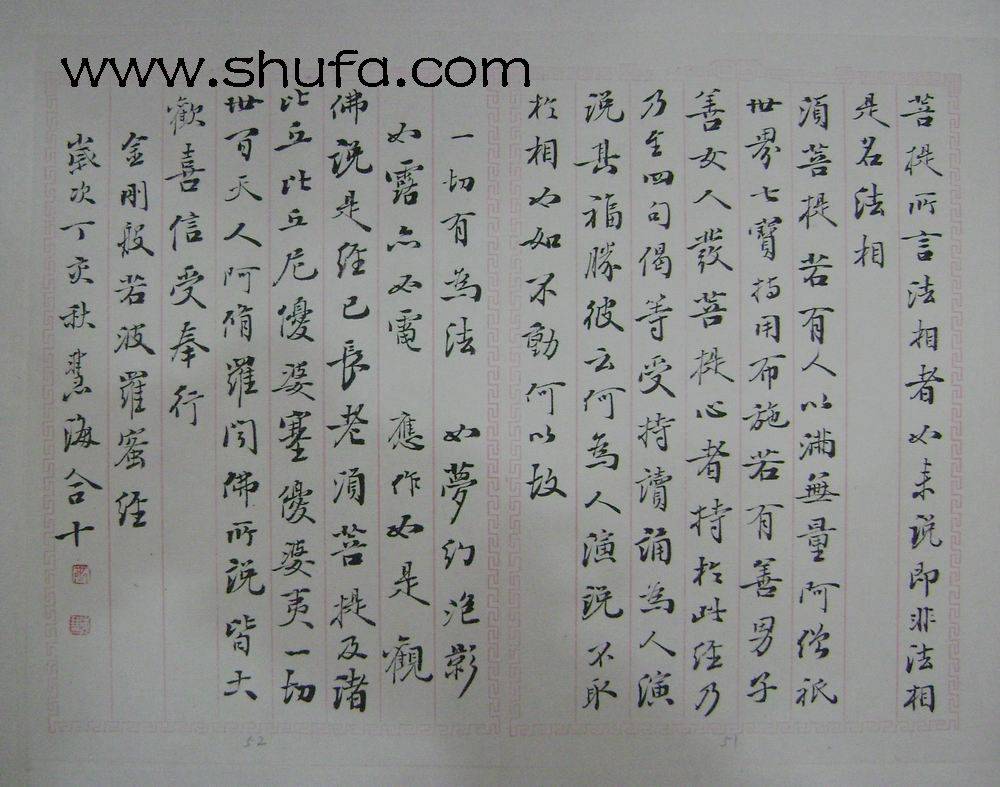 www.shufa.com
菩提所言法相者如来说即非法相
是名法相
須菩提若有人以满無量阿僧祇
世界七寶持用布施若有善男子
善女人發菩提心者持於此经乃
乃至四句偈等受持讀誦為人演
说其福勝彼云何為人演说不取
於相如如不動何以故
一切有為法 如夢幻泡影
如露亦如電 應作如是觀
佛说是经已長老須菩提及诸
比丘比丘尼優婆塞優婆夷一切
世间天人阿脩羅闻佛所说皆大
歡喜信受奉行
金剛般若波羅蜜经
歲次丁亥秋慧海合十
51
52